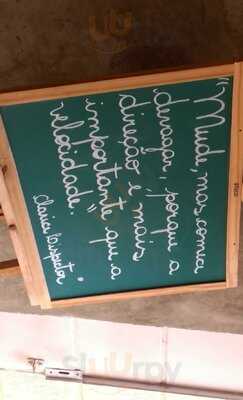 "Mude, mas comece
devagar, porque a
direção é mais
importante que a
velocidade."
Clarice Lispector
Sluurpy